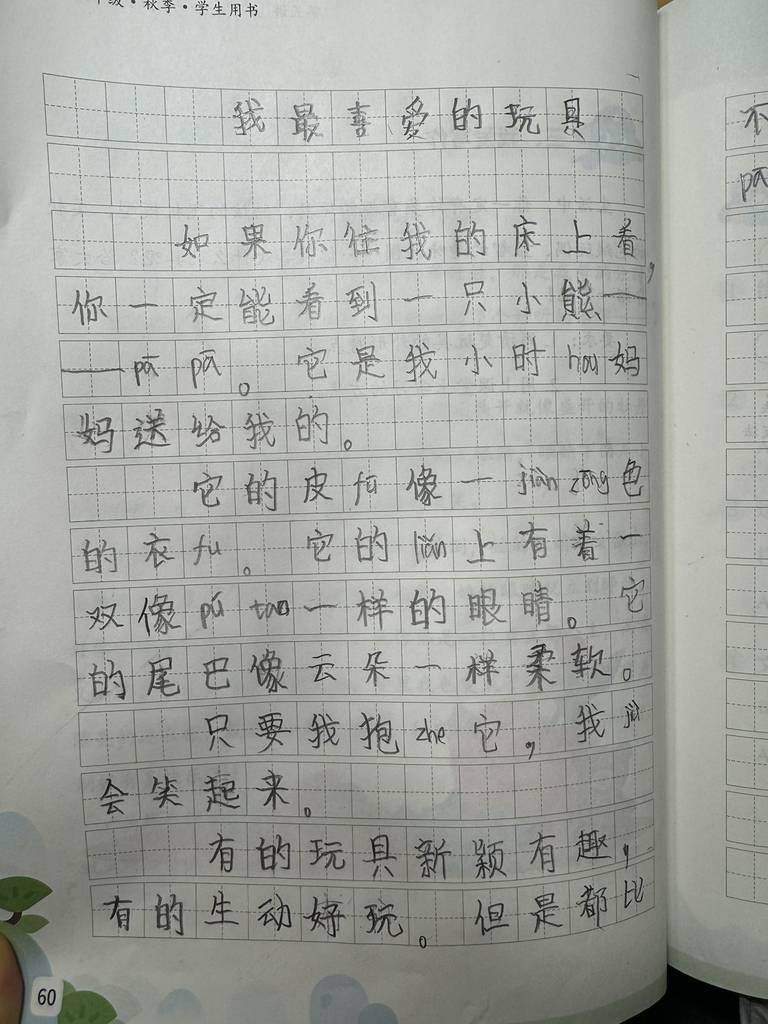 级·秋季·学生用书
我最喜爱的玩具
如果你往我的床上看，
你一定能看到一只小熊—
—pā pā。它是我小时hou妈
妈送给我的。
它的皮fū像一jiàn zōng色
的衣fu。它的liǎn上有着一
双像pú tao一样的眼睛。它
的尾巴像云朵一样柔软。
只要我抱zhe它，我jiù
会笑起来。
有的玩具新颖有趣，
有的生动好玩。但是都比
60
不
pā